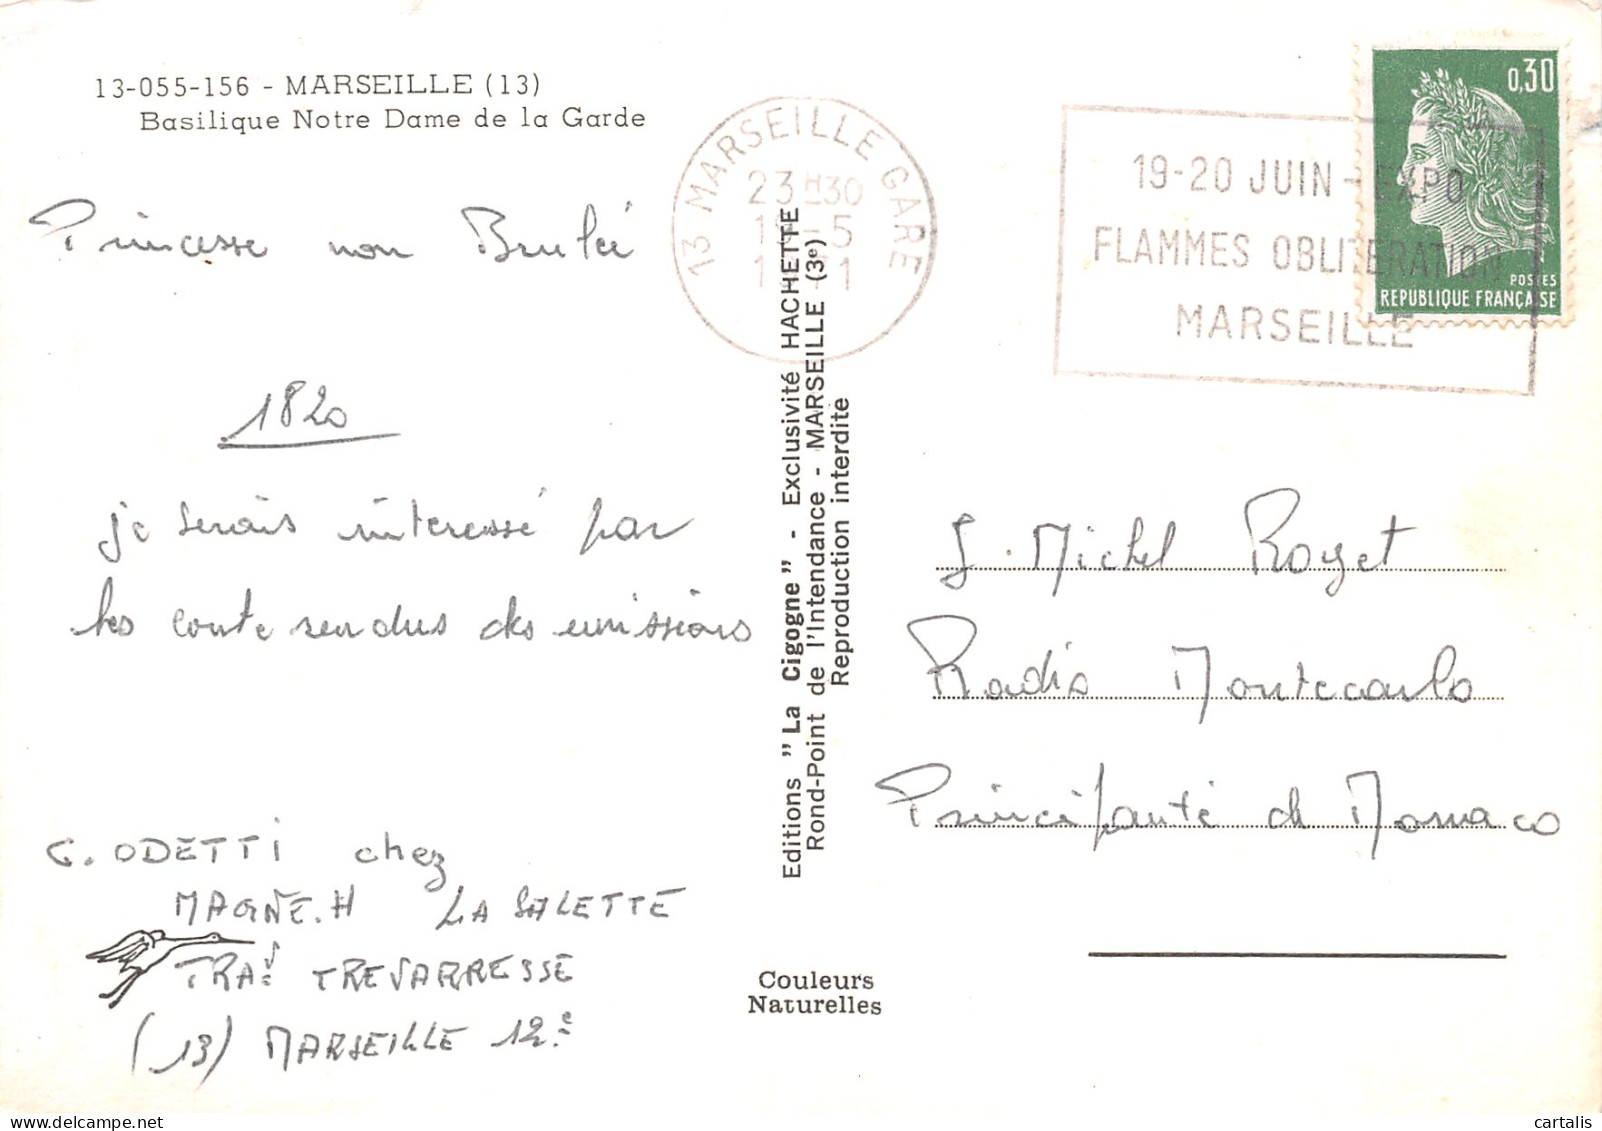 13-055-156 - MARSEILLE (13)
Basilique Notre Dame de la Garde
Princesse non Brulée
1820
je serais intéressé par
les compte rendus des émissions
G. ODETTI chez
MAGNE.H LA SALETTE
TRAV TREVARRESSE
(13) MARSEILLE 12e
Editions "La Cigogne" - Exclusivité HACHETTE
Rond-Point de l'Intendance - MARSEILLE (3e)
Reproduction interdite
Couleurs
Naturelles
13 MARSEILLE GARE
23H30
-5
19-20 JUIN - EXPO
FLAMMES OBLITERATION
MARSEILLE
0,30
POSTES
REPUBLIQUE FRANÇAISE
J. Michel Royet
Radio Montecarlo
Principauté de Monaco
cartalis